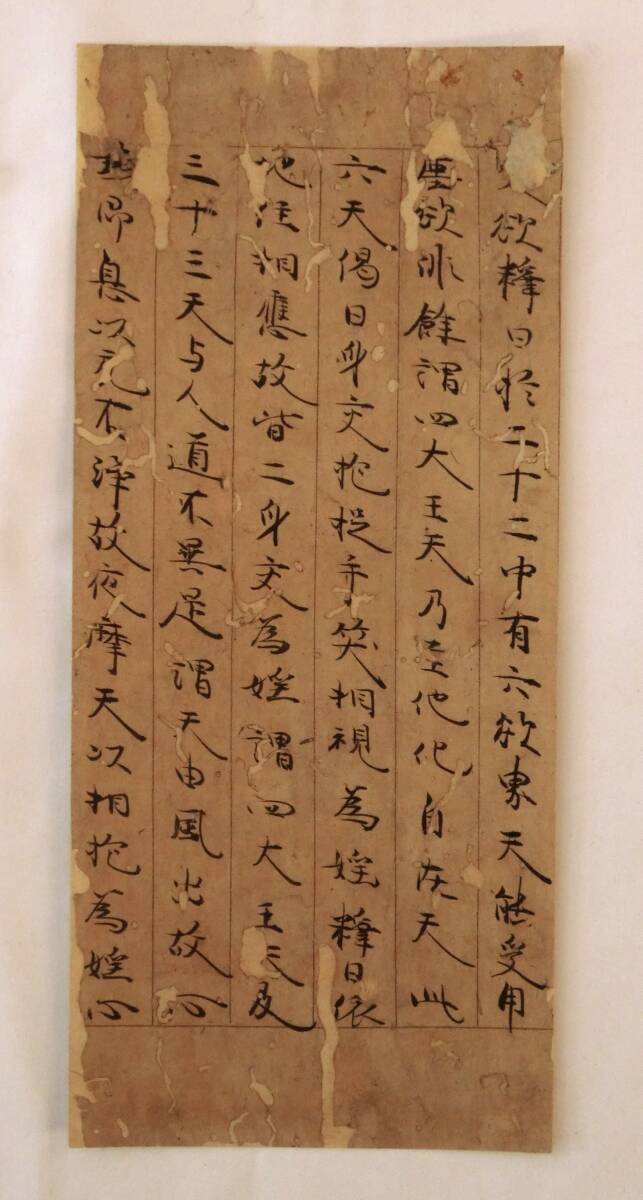 欲釋曰於二十二中有六欲界天能受用
塵欲非餘謂四大王天乃至他化自在天此
六天偈曰身交抱捉手笑相視為婬釋曰依
地住相應故皆二身交為婬謂四大王天及
三十三天与人道不異足謂天由風出故心
熱即息以无不淨故夜摩天以相抱為婬心